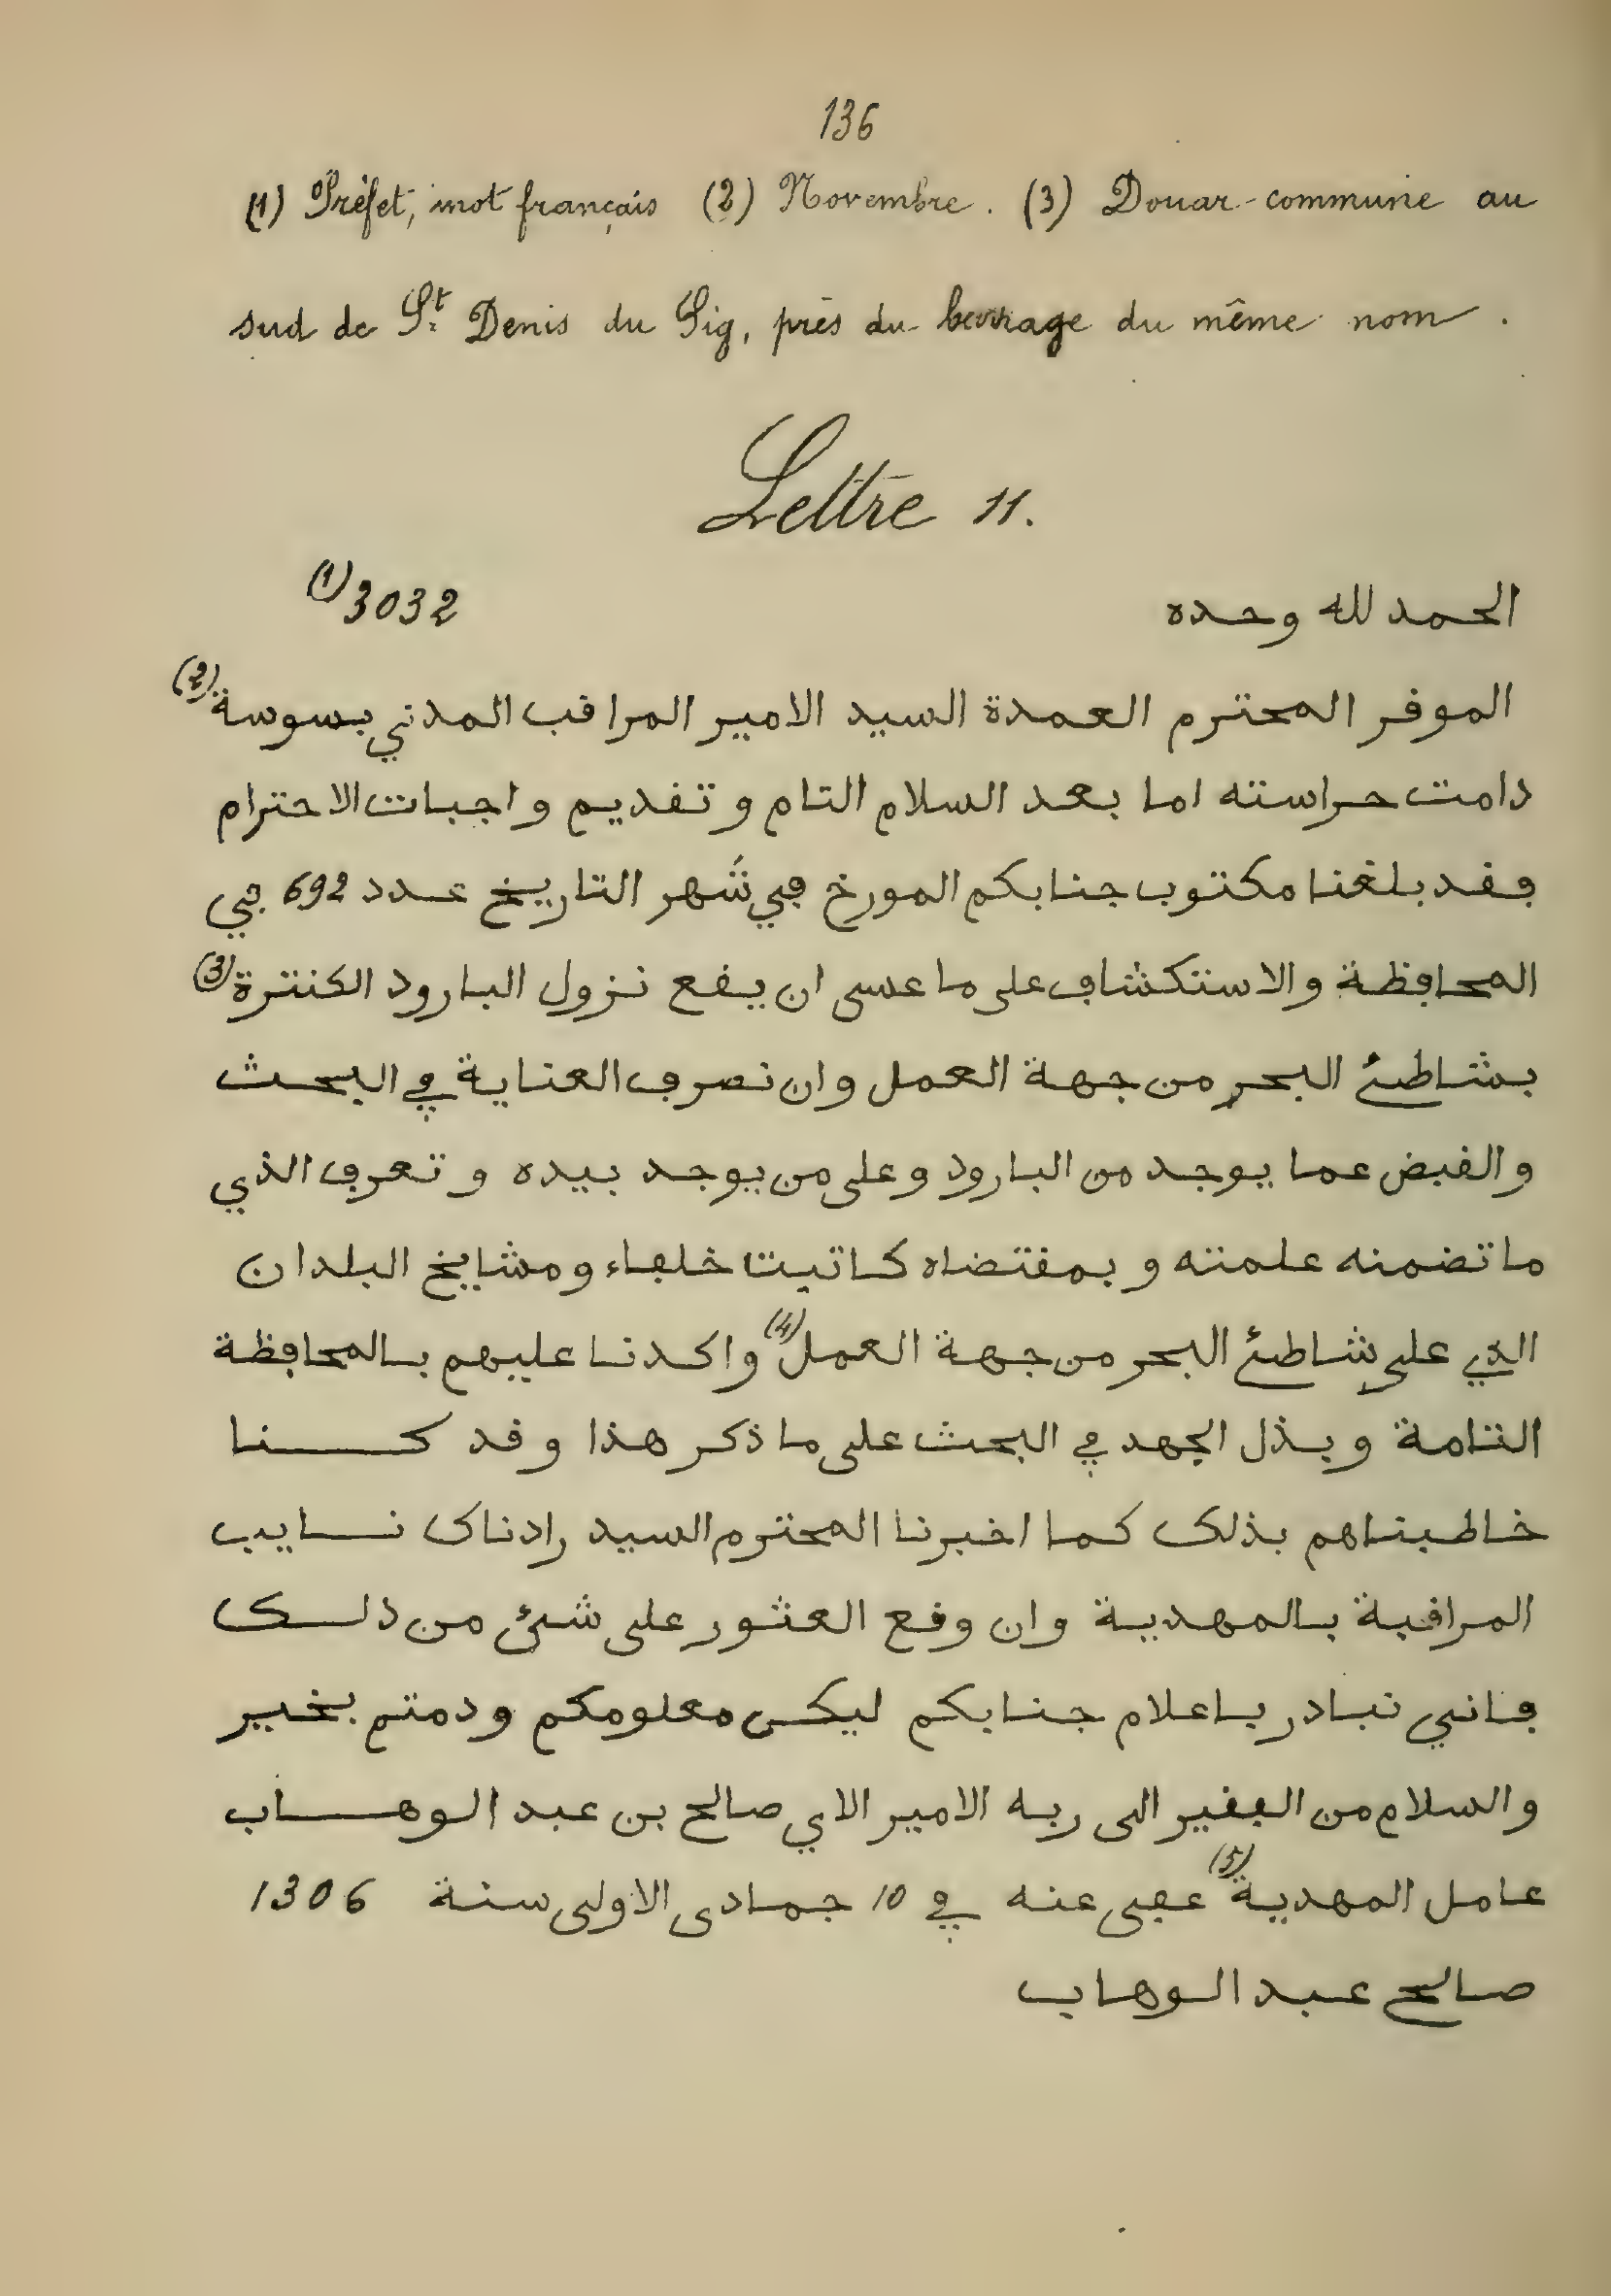 136
(1) Préfet, mot français (2) Novembre. (3) Douar-commune au
sud de St Denis du Sig, près du barrage du même nom.
Lettre 11.
الحمد لله وحده (1) 3032
الموفر المحترم العمدة السيد الامير المرافب المدني بسوسة (2)
دامت حراسته اما بعد السلام التام وتفديم واجبات الاحترام
ڢفد بلغنا مكتوب جنابكم المورخ ڢي شهر التاريخ عدد 692 ڢي
المحاڢظة والاستكشاڢ على ما عسى ان يفع نزول البارود الكنترة (3)
بشاطئ البحر من جهة العمل وان نصرڢ العناية ڢي البحث
والفبض عما يوجد من البارود وعلى من يوجد بيده وتعرڢ الذي
ما تضمنه علمته وبمفتضاه كاتبت خلڢاء ومشايخ البلدان
الذي على شاطئ البحر من جهة العمل (4) واكدنا عليهم بالمحاڢظة
التامة وبذل الجهد ڢي البحث على ما ذكر هذا وفد كنا
خاطبناهم بذلك كما اخبرنا المحترم السيد رادناك نايب
المرافبة بالمهدية وان وفع العثور على شئ من ذلك
ڢانني نبادر باعلام جنابكم ليكن معلومكم ودمتم بخير
والسلام من الڢفير الى ربه الامير الاي صالح بن عبد الوهاب
عامل المهدية (5) عڢى عنه ڢي 10 جمادى الاولى سنة 1306
صالح عبد الوهاب